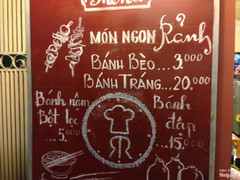 Menu
MÓN NGON Rảnh
BÁNH BÈO...3,000
BÁNH TRÁNG...20.000
Bánh nậm
Bột lọc
...5.000
Bánh
đập
...15.000